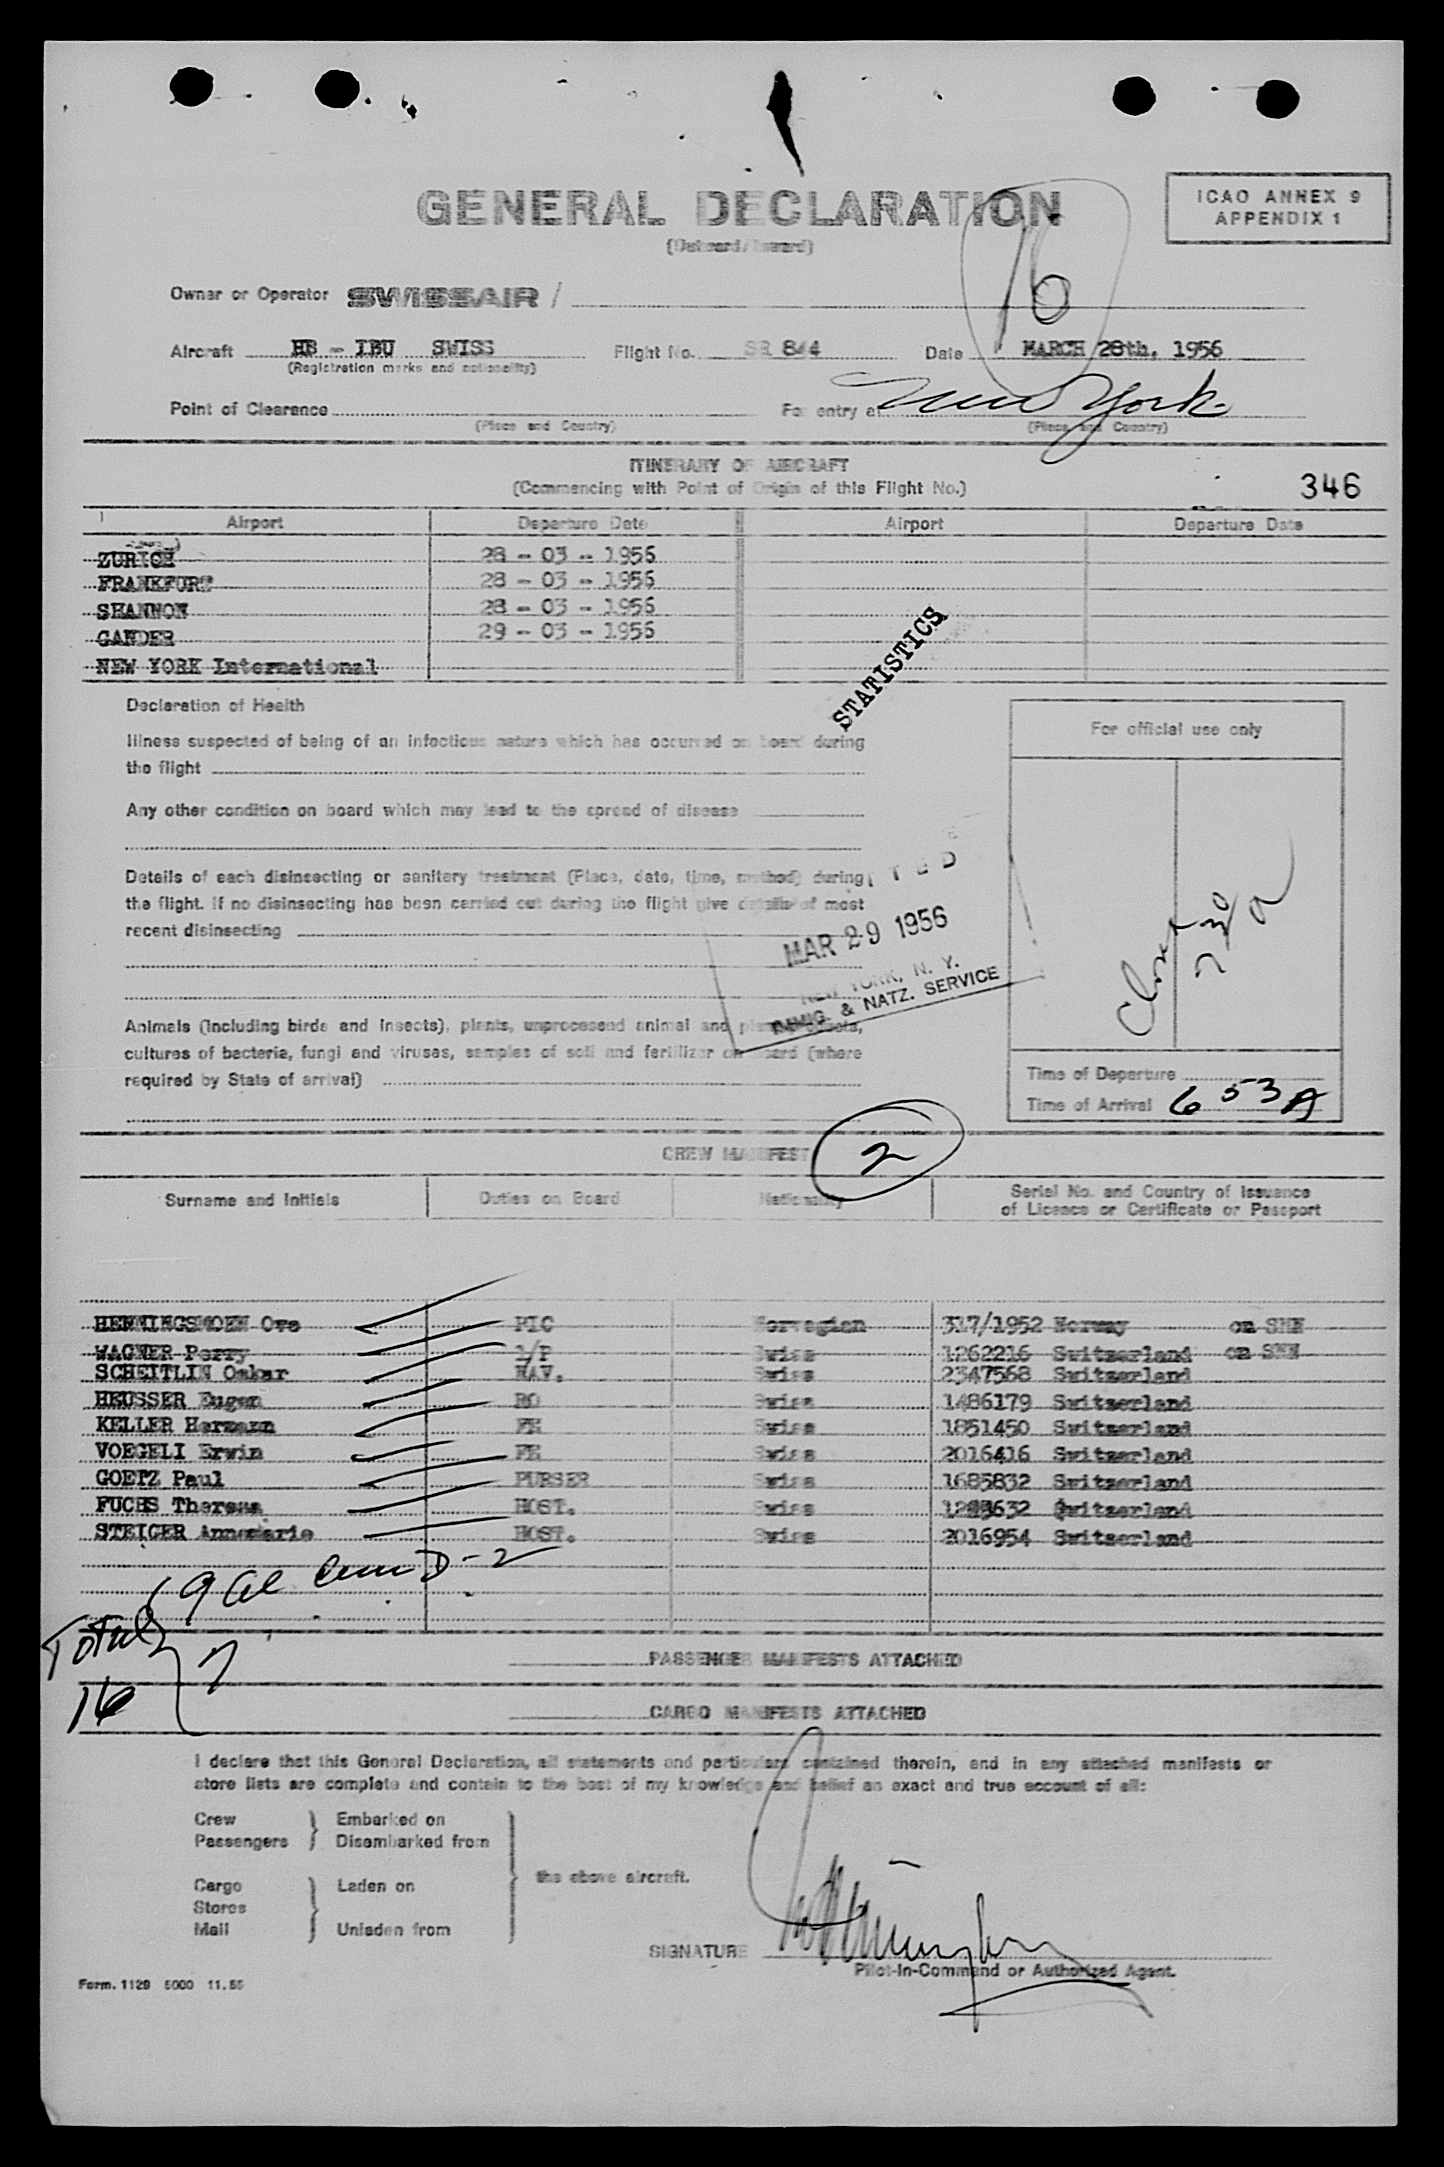 GENERAL DECLARATION
(Outward/Inward)
ICAO ANNEX 9
APPENDIX 1
16
Owner or Operator SWISSAIR /
Aircraft HB - IBU SWISS Flight No. SR 844 Date MARCH 28th, 1956
(Registration marks and nationality)
Point of Clearance For entry at New York
(Place and Country) (Place and Country)
ITINERARY OF AIRCRAFT
(Commencing with Point of Origin of this Flight No.)
346
Airport Departure Date Airport Departure Date
ZURICH 28 - 03 - 1956
FRANKFURT 28 - 03 - 1956
SHANNON 28 - 03 - 1956
GANDER 29 - 03 - 1956
NEW YORK International
STATISTICS
Declaration of Health
Illness suspected of being of an infectious nature which has occurred on board during
the flight
Any other condition on board which may lead to the spread of disease
Details of each disinsecting or sanitary treatment (Place, date, time, method) during
the flight. If no disinsecting has been carried out during the flight give details of most
recent disinsecting
MAR 29 1956
NEW YORK, N. Y.
IMMIG. & NATZ. SERVICE
Animals (including birds and insects), plants, unprocessed animal and plant products,
cultures of bacteria, fungi and viruses, samples of soil and fertilizer on board (where
required by State of arrival)
For official use only
7 30 a
Time of Departure
Time of Arrival 6 53 A
CREW MANIFEST 2
Surname and Initials Duties on Board Nationality Serial No. and Country of Issuance
of Licence or Certificate or Passport
HENNINGSMOEN Ove PIC Norwegian 317/1952 Norway on SHN
WAGNER Perry 2/P Swiss 1262216 Switzerland on SHN
SCHEITLIN Oskar NAV. Swiss 2347568 Switzerland
HEUSSER Eugen RO Swiss 1486179 Switzerland
KELLER Hermann FE Swiss 1851450 Switzerland
VOEGELI Erwin FE Swiss 2016416 Switzerland
GOETZ Paul PURSER Swiss 1685832 Switzerland
FUCHS Therese HOST. Swiss Switzerland
STEIGER Annemarie HOST. Swiss 2016954 Switzerland
9 D-2
Total
7
16
PASSENGER MANIFESTS ATTACHED
CARGO MANIFESTS ATTACHED
I declare that this General Declaration, all statements and particulars contained therein, and in any attached manifests or
store lists are complete and contain to the best of my knowledge and belief an exact and true account of all:
Crew Embarked on
Passengers Disembarked from
the above aircraft.
Cargo Laden on
Stores
Mail Unladen from
SIGNATURE
Pilot-in-Command or Authorized Agent.
Form. 1129 5000 11.55